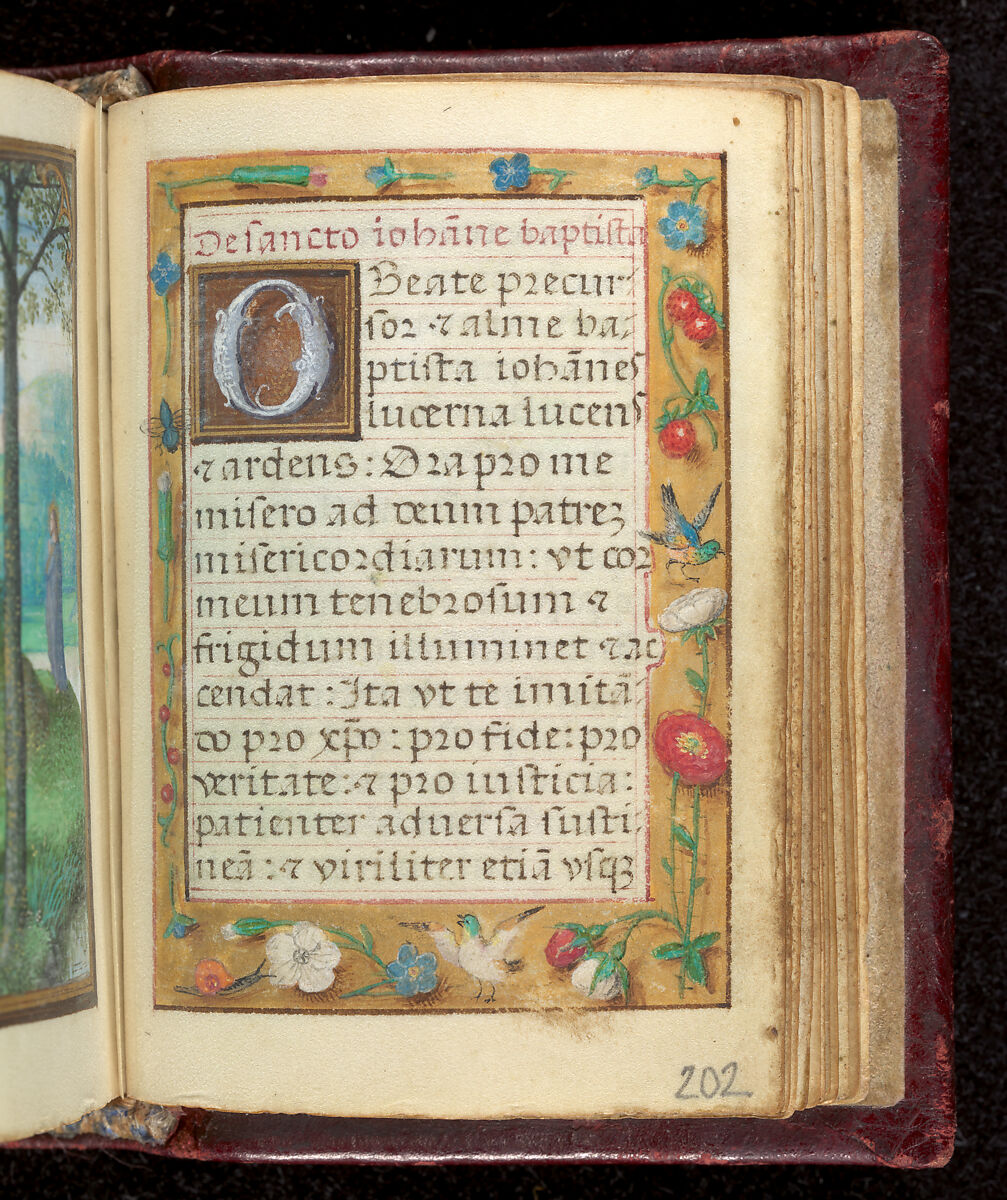 De sancto iohãne baptista
O Beate precur-
sor ⁊ alme ba-
ptista iohãnes
lucerna lucens
⁊ ardens: Ora pro me
misero ad deum patreʒ
misericordiarum: vt cor
meum tenebrosum ⁊
frigidum illuminet ⁊ ac
cendat: Ita vt te imitã-
do pro xp̃o: pro fide: pro
veritate: ⁊ pro iusticia:
patienter aduersa susti-
neã: ⁊ viriliter etiã vsqʒ
202